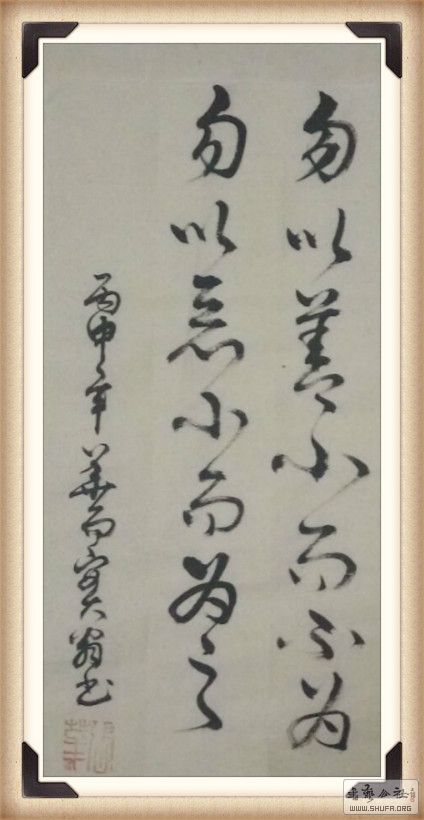 勿以善小而不为
勿以恶小而为之
丙申年
书法公社
WWW.SHUFA.ORG